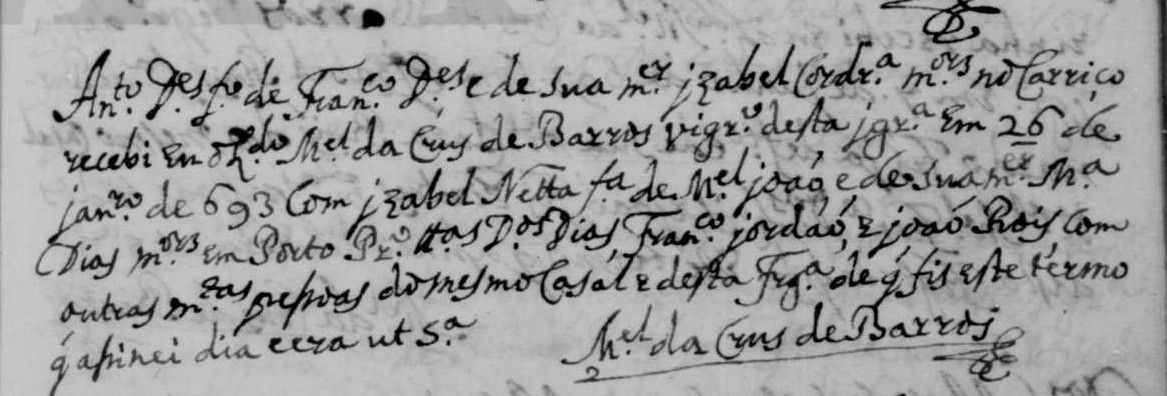 An.to D.es f.o de Fran.co D.es e de sua m.er jzabel Cordr.a m.ors no Carriço
recebi Eu o L.do M.el da Crus de Barros vigr.o desta jgr.a Em 26 de
jan.ro de 693 Com jzabel Netta f.a de M.el joaó, e de sua m.er M.a
Dias m.ors em Porto Pr.o tt.as D.os Dias, Fran.co jordaó, e joaó Rois, Com
outras m.tas pessoas do mesmo Casal e desta Frg.a de q̃ fis este termo
q̃ asinei dia e era ut S.a
M.el da Crus de Barros